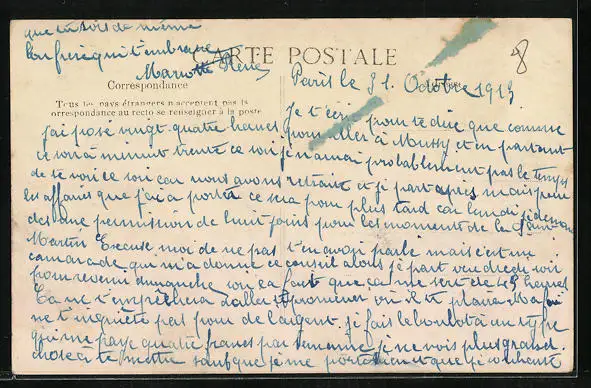 que tu sois de même
ton frère qui t'embrasse
Mariotte René
CARTE POSTALE
Correspondance
Tous les pays étrangers n'acceptent pas la
correspondance au recto se renseigner à la poste
Paris le 31. Octobre 1913
8
Je t'écris pour te dire que comme
j'ai posé vingt quatre heures pour aller à Mussy et en partant
ce soir à minuit trente ce soir je n'aurai probablement pas le temps
de te voir ce soir car nous avons retraite et je part après mais pour
les affaires que j'ai à porter ce sera pour plus tard car lundi je
demande une permission de huit jours pour les moments de la Saint
Martin Excuse moi de ne pas t'en avoir parlé mais c'est un
camarade qui m'a donné ce conseil alors je part vendredi soir
pour revenir dimanche soir ça fait que ça me sert de 48 heures
Ça ne t'empêchera d'aller promener où il te plaira
ne t'inquiète pas pour de l'argent. je fais le boulot à un type
qui me paye quatre francs par semaine je ne vois plus grand
chose à te mettre sauf que je me porte bien et que je souhaite